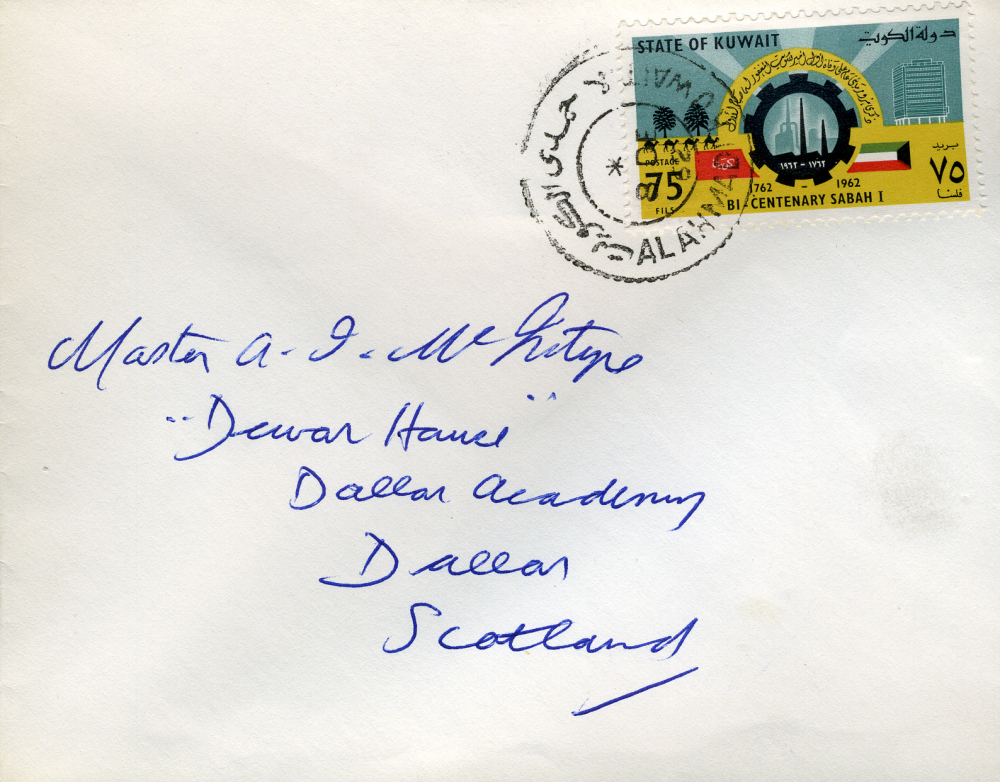 STATE OF KUWAIT
دولة الكويت
POSTAGE
75
FILS
١٧٦٢ - ١٩٦٢
1762 - 1962
BI-CENTENARY SABAH I
بريد
٧٥
فلسا
KUWAIT
8 DE
AL AHMADI
Master A. I. McIntyre
"Dewar House"
Dollar Academy
Dollar
Scotland